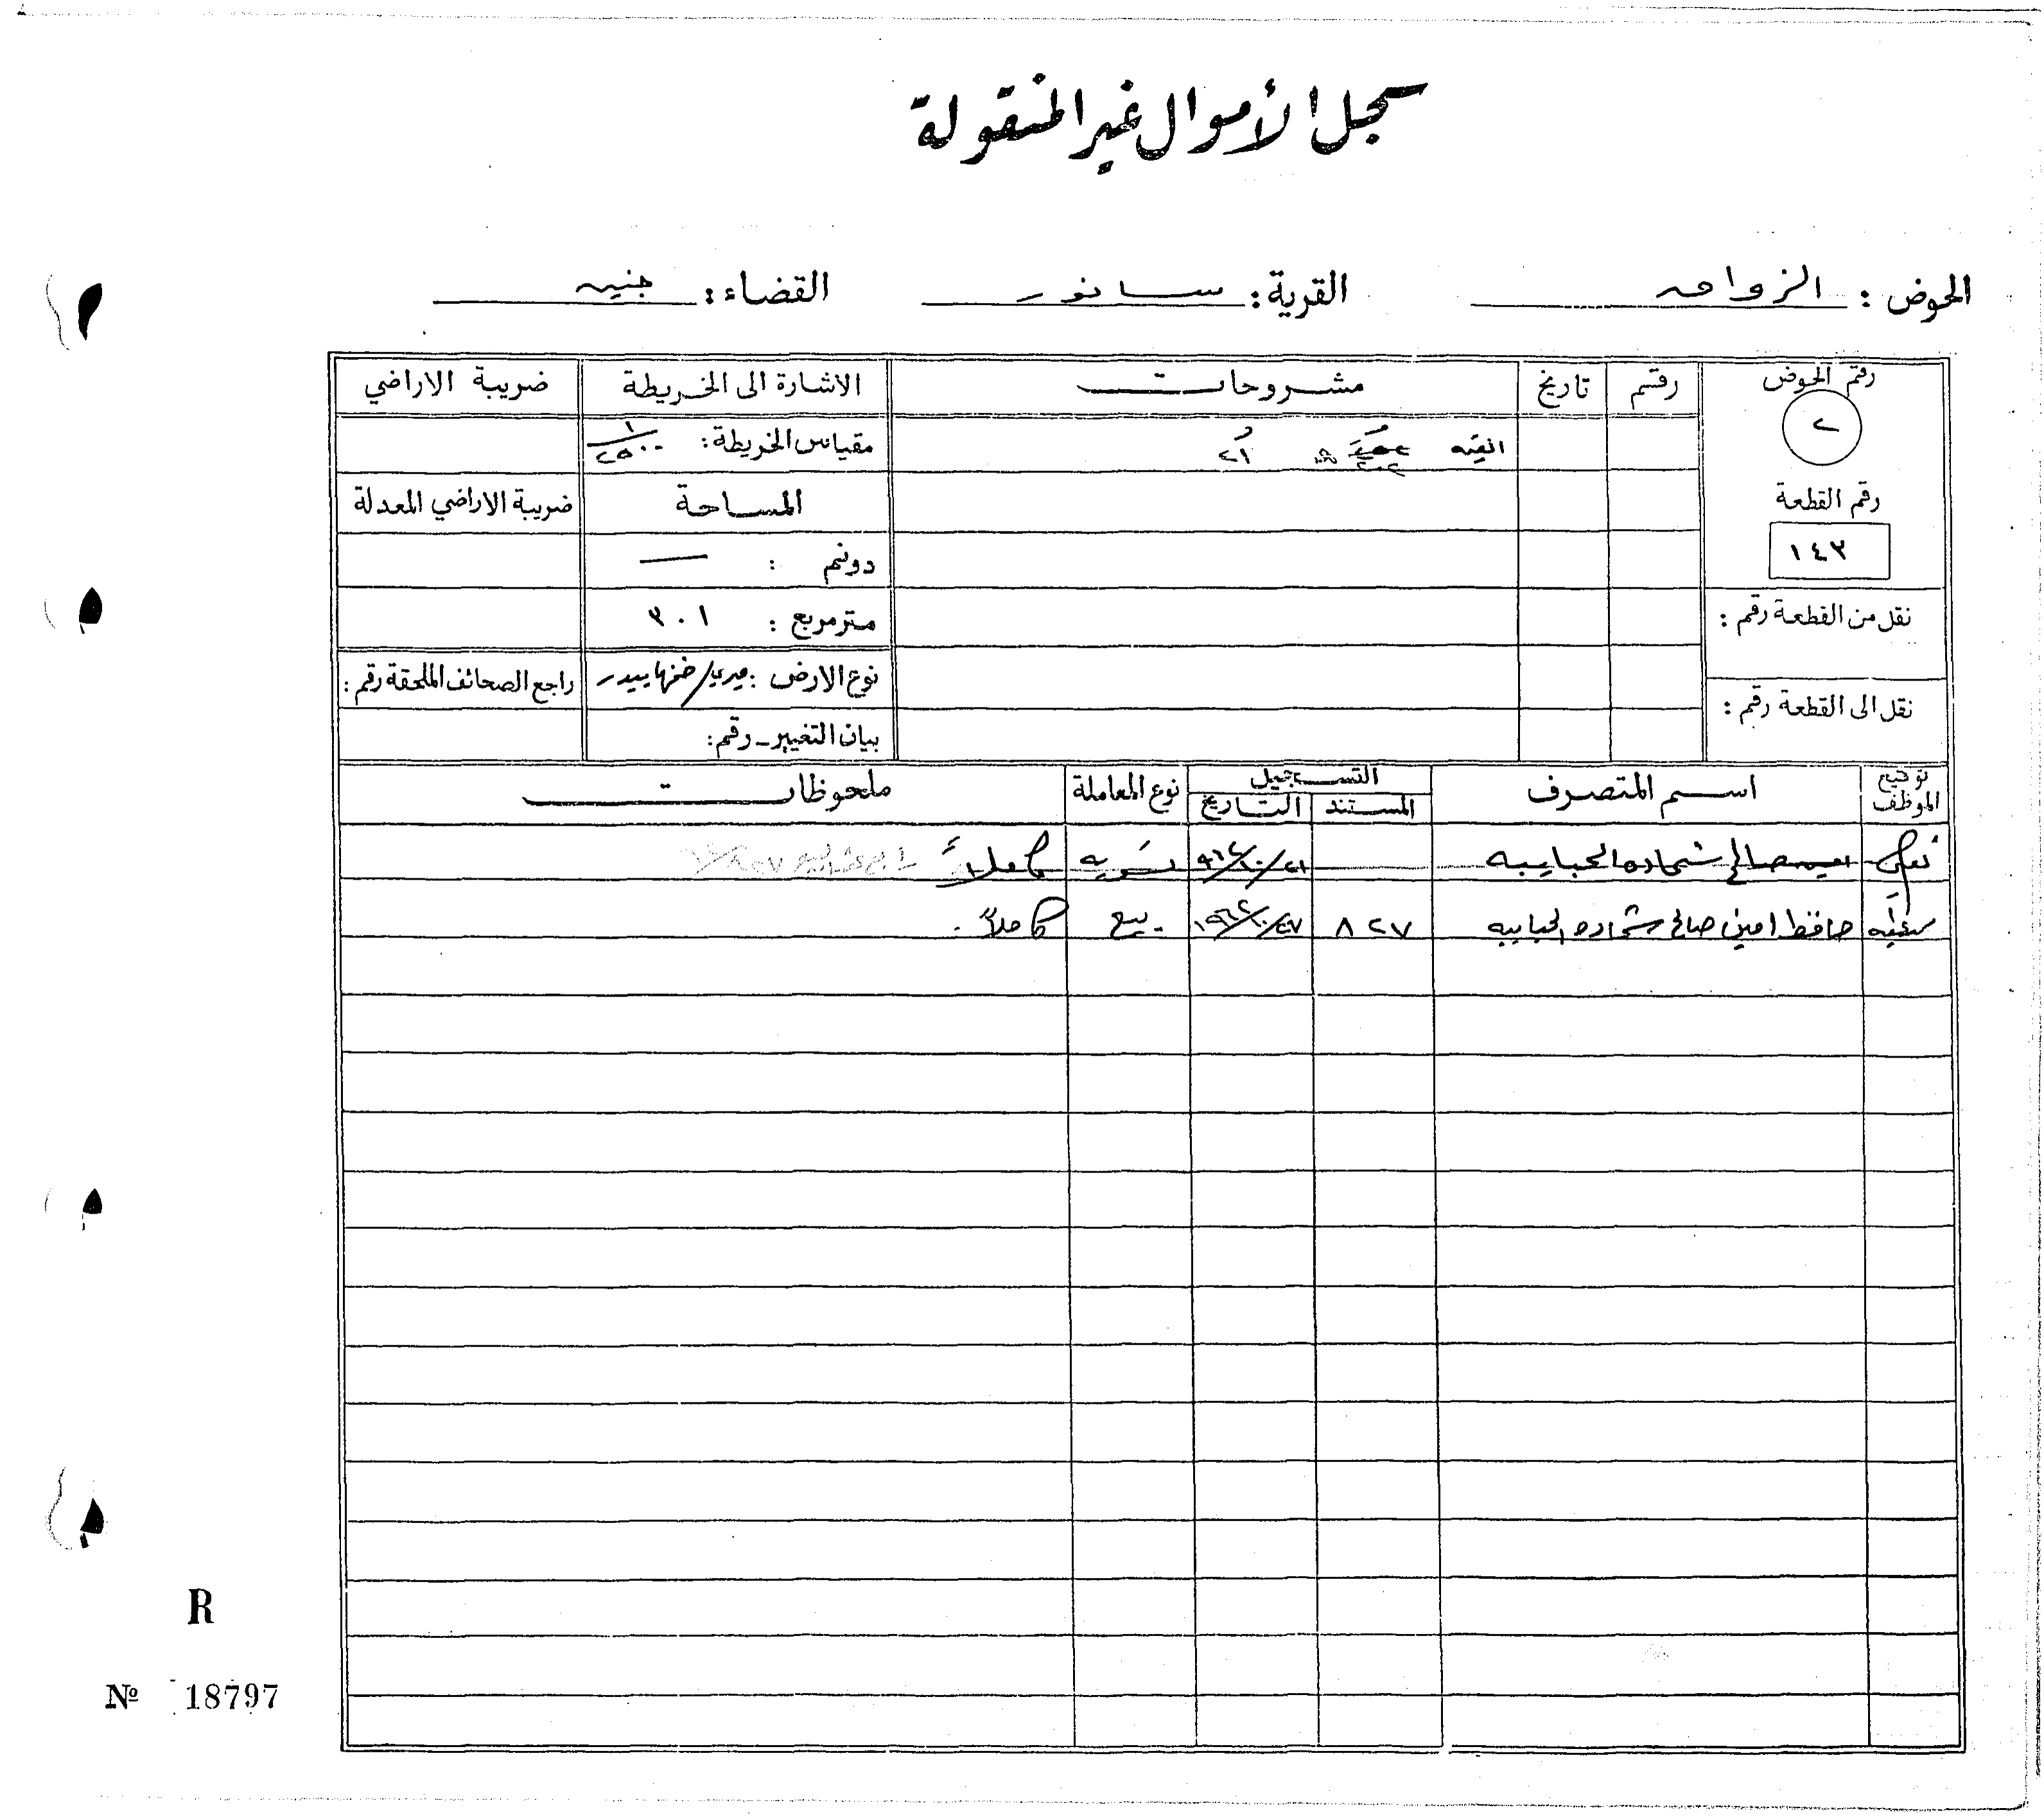 سجل الأموال غير المنقولة
الحوض : القرية : سانور القضاء : جنين
رقم الحوض رقم تاريخ مشروحات الاشارة الى الخريطة ضريبة الاراضي
٢ مقياس الخريطة : ١/٢٥٠٠
رقم القطعة المساحة ضريبة الاراضي المعدلة
١٤٣ دونم : —
نقل من القطعة رقم : متر مربع : ٣٠١
نوع الارض : ميري راجع الصحائف الملحقة رقم :
نقل الى القطعة رقم : بيان التغيير - رقم :
توقيع الموظف اسم المتصرف التسجيل نوع المعاملة ملحوظات
المستند التاريخ
صالح شحاده الحبايبه تسويه كاملاً
حافظ امين صالح شحاده الحبايبه ٨٢٧ بيع كاملاً .
R
№ 18797